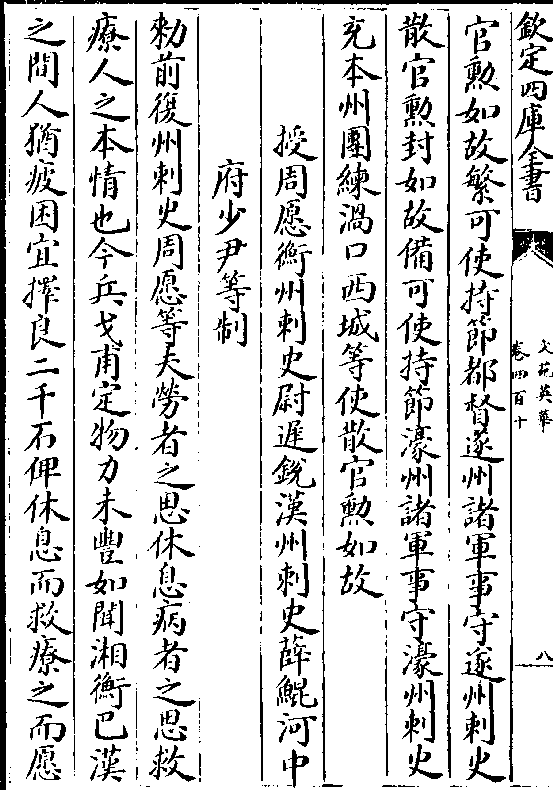 欽定四庫全書
文苑英華
卷四百十
八
官勲如故繁可使持節都督遂州諸軍事守遂州刺史
散官勲封如故備可使持節濠州諸軍事守濠州刺史
充本州團練渦口西城等使散官勲如故
授周愿衡州刺史尉遲鋭漢州刺史薛鯤河中
府少尹等制
勅前復州刺史周愿等夫勞者之思休息病者之思救
療人之本情也今兵戈甫定物力未豐如聞湘衡巴漢
之間人猶疲困宜擇良二千石俾休息而救療之而愿